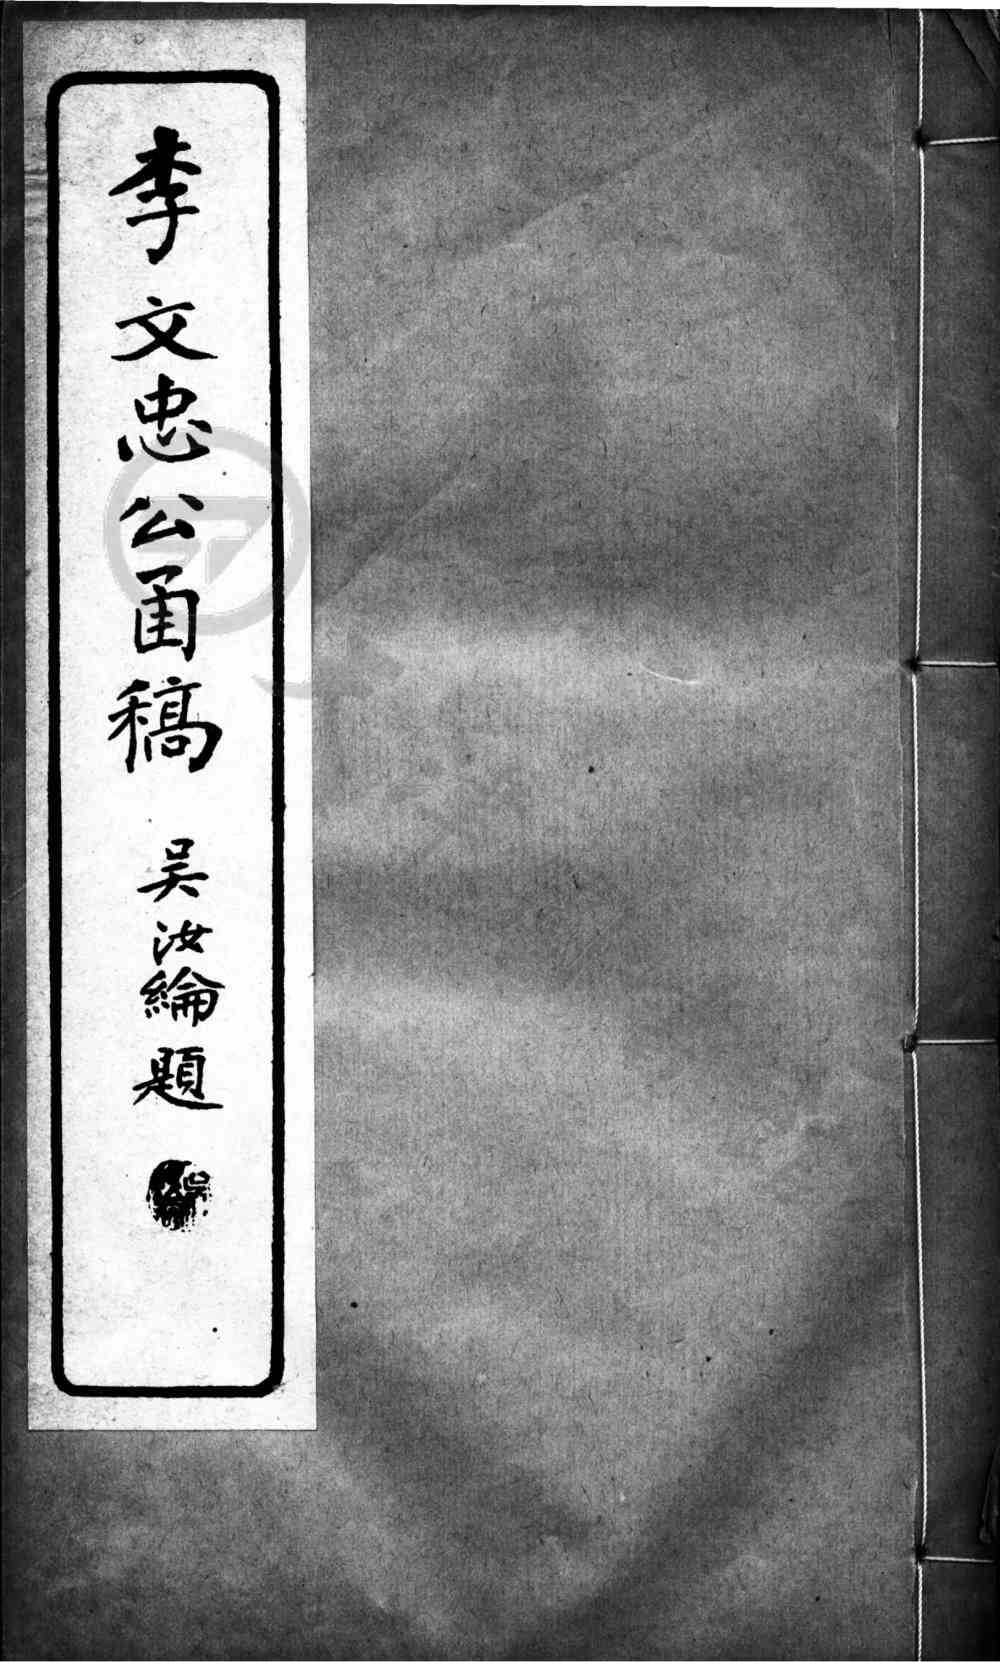 李文忠公函稿
吳汝綸題